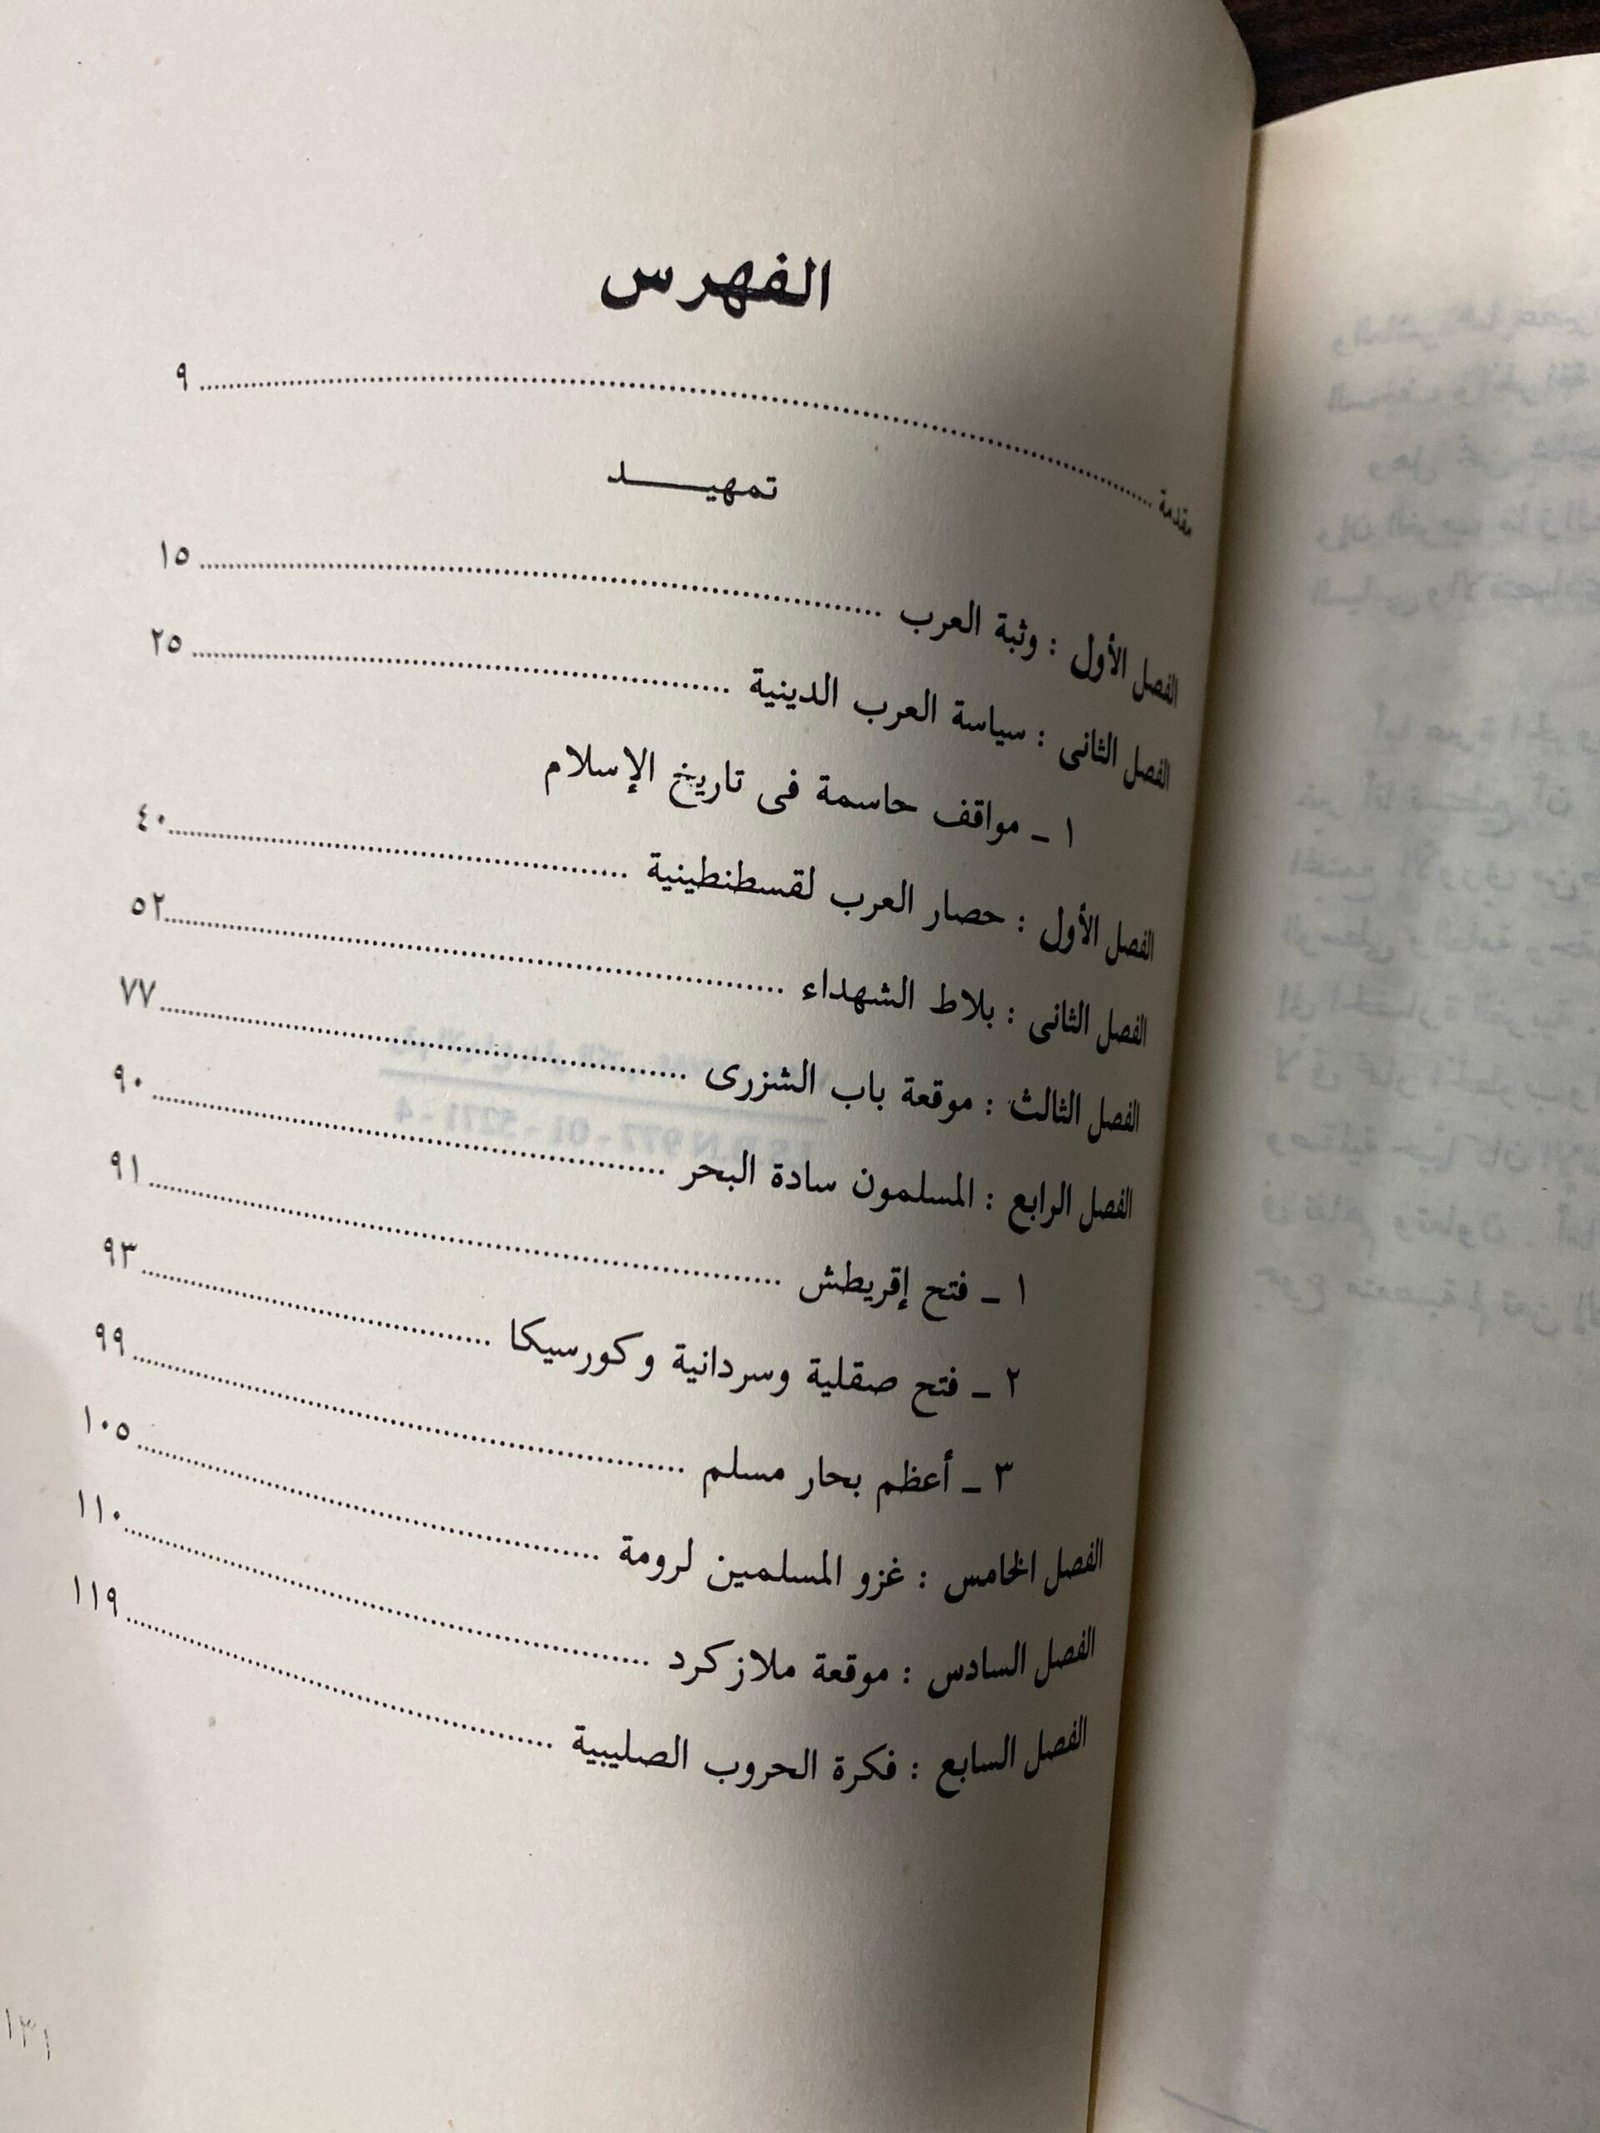 الفهرس
مقدمة ........ ٩
تمهيــــد
الفصل الأول : وثبة العرب ........ ١٥
الفصل الثانى : سياسة العرب الدينية ........ ٢٥
١ ـ مواقف حاسمة فى تاريخ الإسلام
الفصل الأول : حصار العرب لقسطنطينية ........ ٤٠
الفصل الثانى : بلاط الشهداء ........ ٥٢
الفصل الثالث : موقعة باب الشزرى ........ ٧٧
الفصل الرابع : المسلمون سادة البحر ........ ٩٠
١ ـ فتح إقريطش ........ ٩١
٢ ـ فتح صقلية وسردانية وكورسيكا ........ ٩٣
٣ ـ أعظم بحار مسلم ........ ٩٩
الفصل الخامس : غزو المسلمين لرومة ........ ١٠٥
الفصل السادس : موقعة ملازكرد ........ ١١٠
الفصل السابع : فكرة الحروب الصليبية ........ ١١٩
١٣١